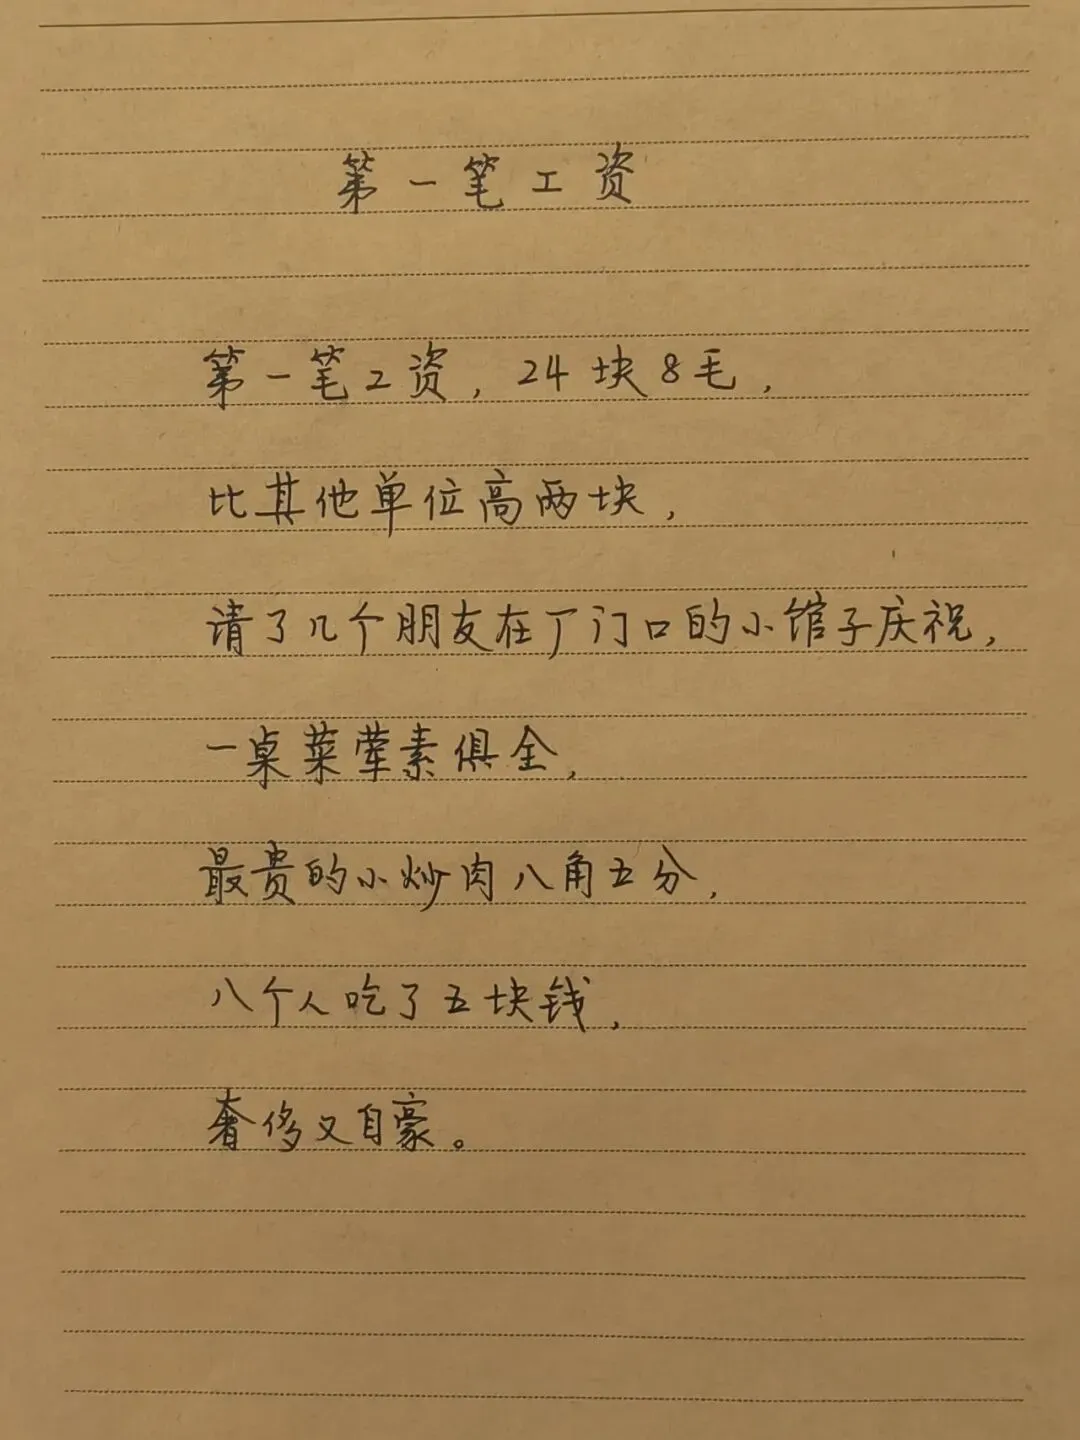 第一笔工资
第一笔工资，24块8毛，
比其他单位高两块，
请了几个朋友在厂门口的小馆子庆祝，
一桌菜荤素俱全，
最贵的小炒肉八角五分，
八个人吃了五块钱，
奢侈又自豪。